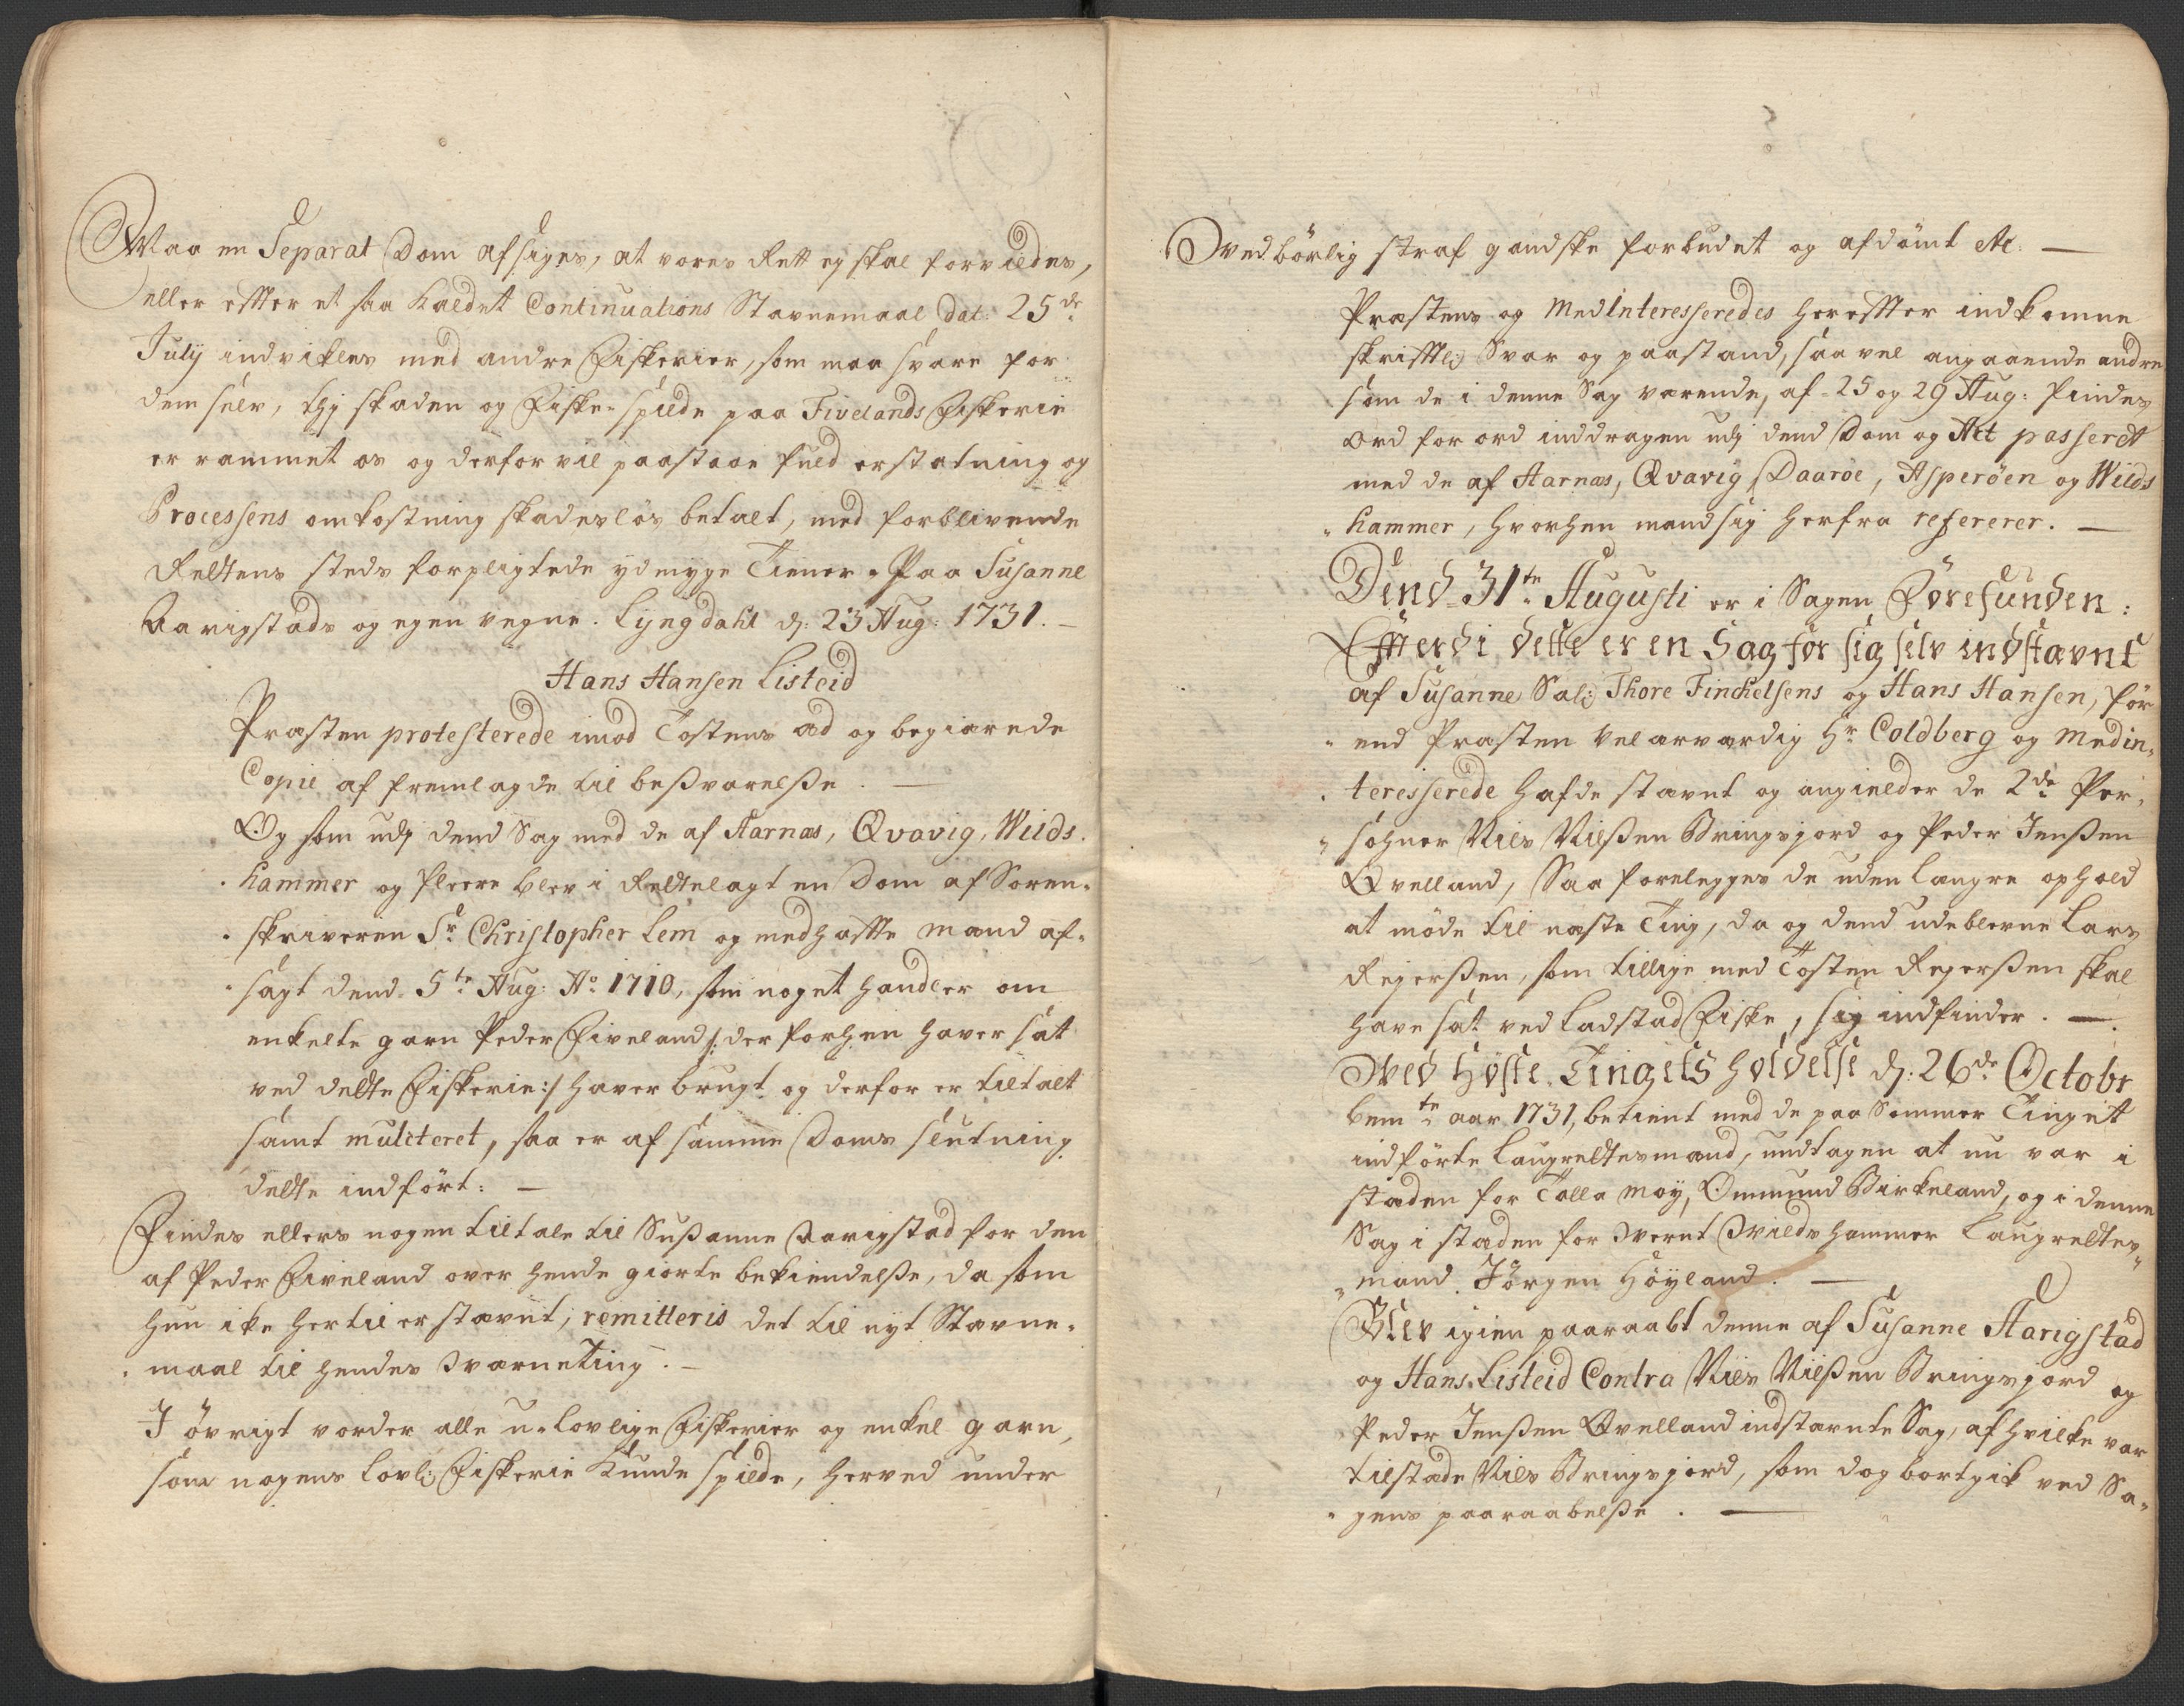 Maa en Separat Dom afsiges, at vores Rett ey skal forvildes,
eller effter et saa kaldet Continuations Stavnemaal dat: 25de
July indvikles med andre Fiskerier, som maa svare for
dem selv, thj skaden og Fiske-spilde paa Fivelands Fiskerie
er rammet os og derfor vil paastaae fuld erstatning og
Processens omkostning skadesløs betalt, med forblivende
Rettens steds forpligtede ydmyge Tiener. Paa Susanne
Aarigstads og egen vegne. Lyngdahl d: 23 Aug: 1731. –
Hans Hansen Listeid
Præsten protesterede imod Tostens ad og begiærede
Copie af fremlagde til beßvarelße. —
Og som udj dend Sag med de af Aarnæs, Qvavig, Wilds-
hammer og fleere blev i Rettelagt en Dom af Soren-
skriveren Sr. Christopher Lem og medhaffte mænd af-
sagt dend 5te Aug: Ao 1710, som noget handler om
enkelte garn Peder Fiveland /: der forhen haver sat
ved dette Fiskerie :/ haver brugt og derfor er tiltalt
samt mulcteret, saa er af samme Doms slutning
dette indført: —
Findes ellers nogen tiltale til Sußanne Aarigstad for den
af Peder Fiveland over hende giorte bekiendelße, da som
hun ike hertil er stavnt, remitteris det til nyt Stavne-
maal til hendes Værneting. –
I øvrigt vorder alle u-lovlige Fiskerier og enkel garn,
som nogens lovl: Fiskerie kunde spilde, herved under
Vedbørlig straf gandske forbudet og afdømt etc: —
Præstens og Medinteresseredes hereffter indkomne
skrifftl: Svar og paastand, saa vel angaaende andre
som de i denne Sag værende, af 25 og 29 Aug: findes
ord for ord inddragen udj dend Dom og Act passeret
med de af Aarnæs, Qvavig, Daarøe, Asperøen og Wilds
hammer, hvorhen mand sig herfra refererer. —
Dend 31te Augusti er i Sagen Forefunden:
Effterdi dette er en Sag for sig selv indstævnt
af Susanne Sal: Thore Finckelsens og Hans Hansen, før-
end Præsten Velærværdig Hr Coldberg og medin-
teresserede hafde stævnt og angielder de 2de Per-
sohner Niels Nielßen Bringsjord og Peder Jenßen
Qvelland, Saa forelegges de uden længre ophold
at møde til næste Ting, da og dend udeblevne Lars
Rejerßen, som tillige med Tosten Rejerßen skal
have sat ved Ladstad Fiske, sig indfinder. —
Ved Høste-Tingets holdelse d: 26de Octobr
bemte aar 1731, betient med de paa Sommer Tinget
indførte Laugrettesmænd, undtagen at nu var i
staden for Tolla Moy, Ommund Birkeland, og i denne
Sag i staden for Svernt Vildshammer Laugrettes-
mand Jørgen Høyland. —
Blev igien paaraabt denne af Susanne Aarigstad
og Hans Listeid Contra Niels Nielßen Bringsjord og
Peder Jenßen Qvelland indstævnte Sag, af hvilke var
tilstæde Niels Bringsjord, som dog bortgik ved Sa-
gens paaraabelße. —